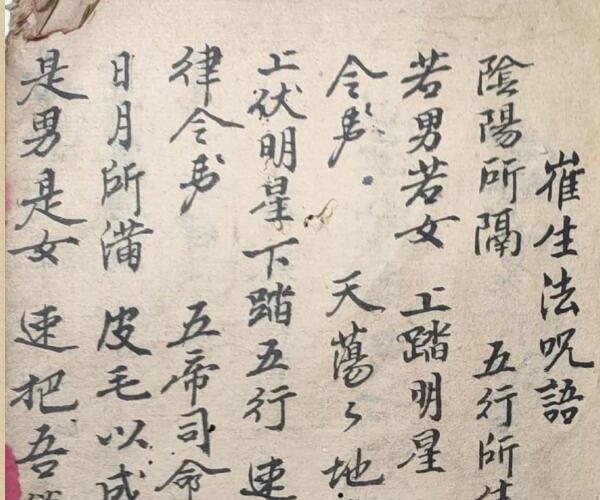 崔生法咒語
陰陽所隔 五行所
若男若女 上踏明星
令 天蕩々地
上伏明星下踏五行 速
律令 五帝司命
日月所滿 皮毛以成
是男是女 速把吾